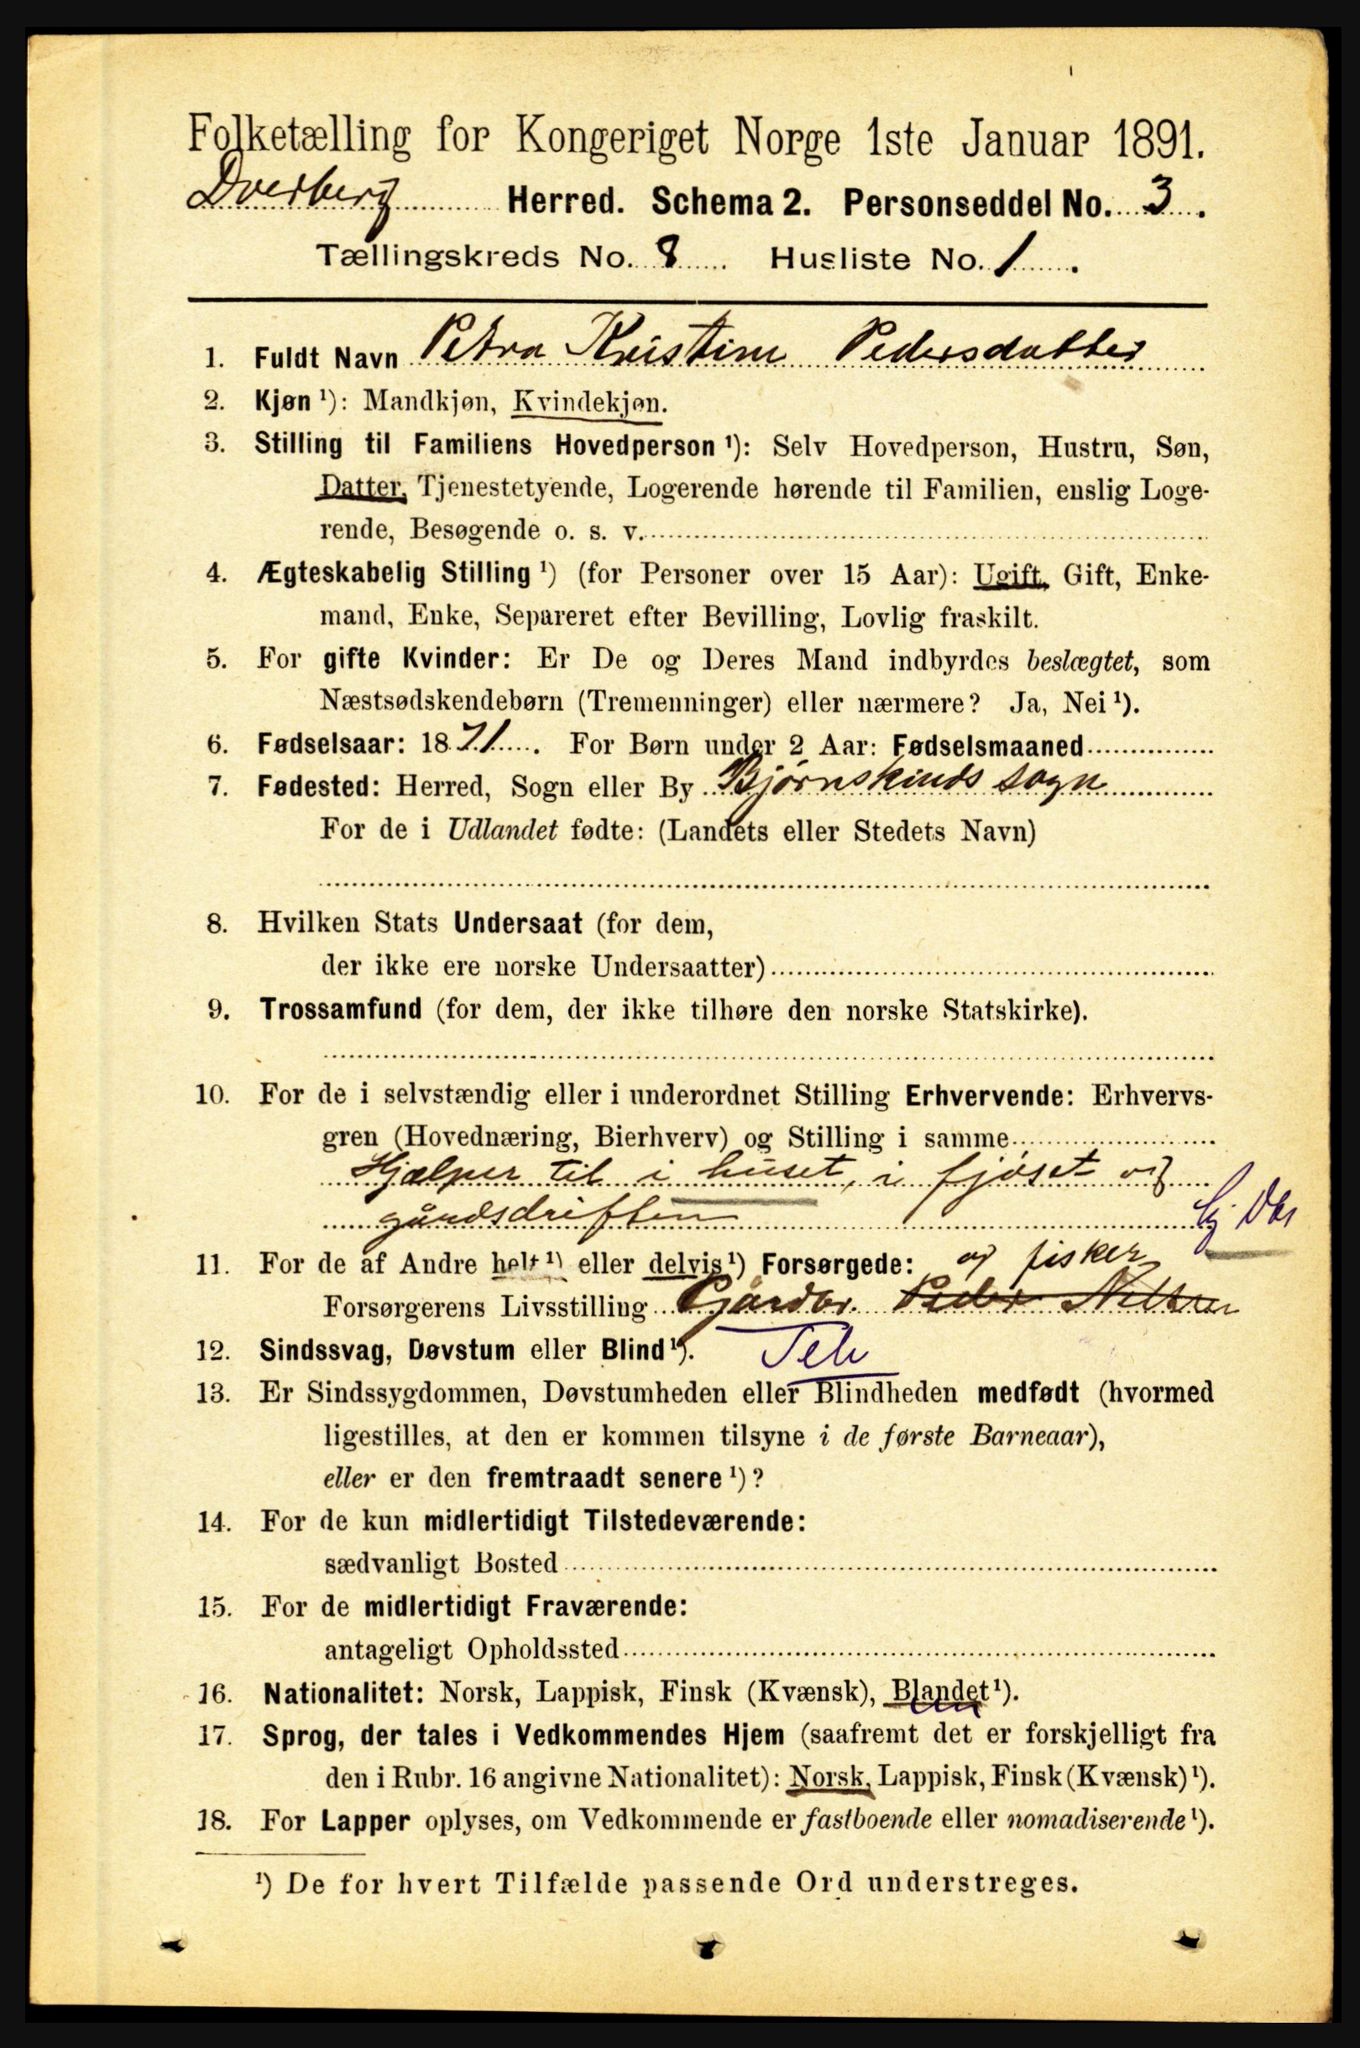 Folketælling for Kongeriget Norge 1ste Januar 1891.
Dverberg Herred. Schema 2. Personseddel No. 3.
Tællingskreds No. 8. Husliste No. 1.
1. Fuldt Navn Petra Kristine Pedersdatter
2. Kjøn ¹): Mandkjøn, Kvindekjøn.
3. Stilling til Familiens Hovedperson ¹): Selv Hovedperson, Hustru, Søn,
Datter, Tjenestetyende, Logerende hørende til Familien, enslig Loge-
rende, Besøgende o. s. v.
4. Ægteskabelig Stilling ¹) (for Personer over 15 Aar): Ugift, Gift, Enke-
mand, Enke, Separeret efter Bevilling, Lovlig fraskilt.
5. For gifte Kvinder: Er De og Deres Mand indbyrdes beslægtet, som
Næstsødskendebørn (Tremenninger) eller nærmere? Ja, Nei ¹).
6. Fødselsaar: 1871. For Børn under 2 Aar: Fødselsmaaned
7. Fødested: Herred, Sogn eller By Bjørnskinds sogn
For de i Udlandet fødte: (Landets eller Stedets Navn)
8. Hvilken Stats Undersaat (for dem,
der ikke ere norske Undersaatter)
9. Trossamfund (for dem, der ikke tilhøre den norske Statskirke).
10. For de i selvstændig eller i underordnet Stilling Erhvervende: Erhvervs-
gren (Hovednæring, Bierhverv) og Stilling i samme
Hjælper til i huset, i fjøset og
gårdsdriften
11. For de af Andre helt ¹) eller delvis ¹) Forsørgede: og fisker
Forsørgerens Livsstilling Gårdbr. Peder
12. Sindssvag, Døvstum eller Blind ¹).
13. Er Sindssygdommen, Døvstumheden eller Blindheden medfødt (hvormed
ligestilles, at den er kommen tilsyne i de første Barneaar),
eller er den fremtraadt senere ¹)?
14. For de kun midlertidigt Tilstedeværende:
sædvanligt Bosted
15. For de midlertidigt Fraværende:
antageligt Opholdssted
16. Nationalitet: Norsk, Lappisk, Finsk (Kvænsk), Blandet ¹).
17. Sprog, der tales i Vedkommendes Hjem (saafremt det er forskjelligt fra
den i Rubr. 16 angivne Nationalitet): Norsk, Lappisk, Finsk (Kvænsk) ¹).
18. For Lapper oplyses, om Vedkommende er fastboende eller nomadiserende ¹).
¹) De for hvert Tilfælde passende Ord understreges.